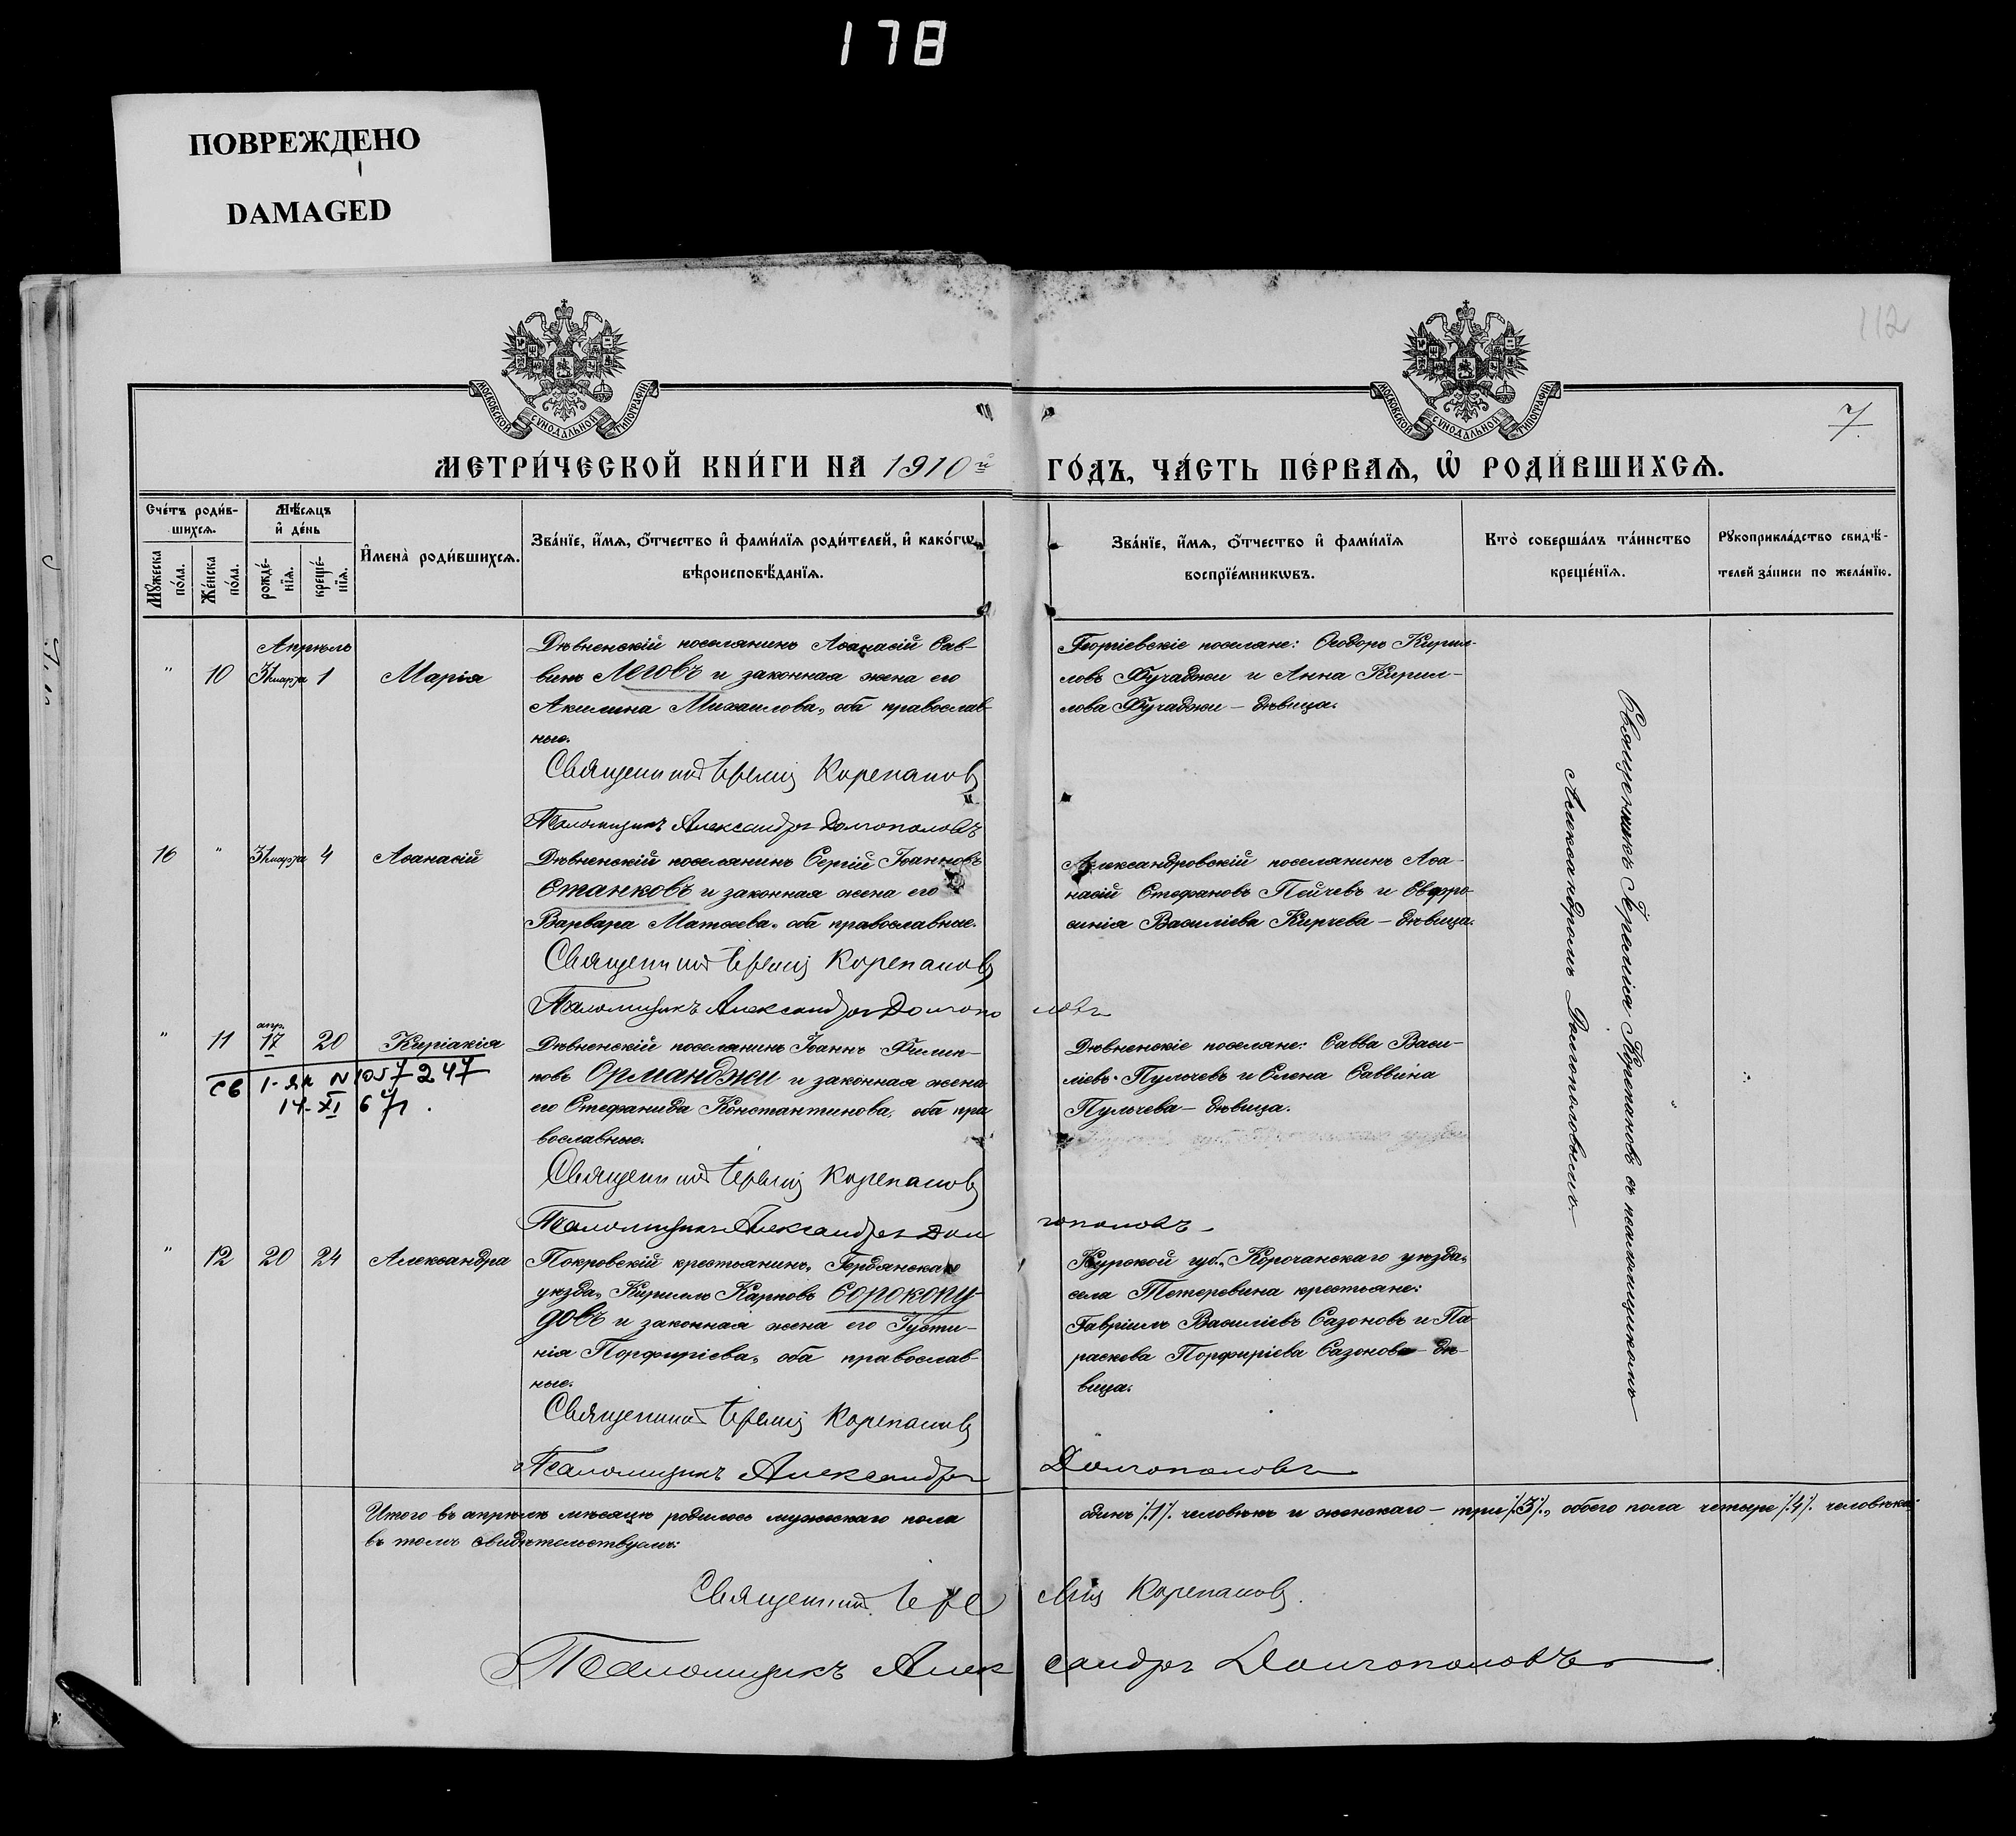 178
ПОВРЕЖДЕНО
DAMAGED
112
7.
МОСКОВСКОЙ СѴНОДАЛЬНОЙ ТИПОГРАФІИ
МОСКОВСКОЙ СѴНОДАЛЬНОЙ ТИПОГРАФІИ
МЕТРИ́ЧЕСКОЙ КНИ́ГИ НА 1910й ГО́ДЪ, ЧА́СТЬ ПЕ́РВАѦ, Ѽ РОДИ́ВШИХСѦ.
Сче́тъ роди́в-
шихсѧ.
Мꙋ́жеска по́ла.
Же́нска по́ла.
Мѣ́сѧцъ
и҆ де́нь
рожде́-
нїѧ.
креще́-
нїѧ.
И҆мена̀ роди́вшихсѧ.
Зва́нїе, и҆́мѧ, ѻ҆́тчество и҆ фами́лїѧ роди́телей, и҆ како́гѡ
вѣроисповѣ́данїѧ.
Зва́нїе, и҆́мѧ, ѻ҆́тчество и҆ фами́лїѧ
воспрїе́мникѡвъ.
Кто̀ соверша́лъ та́инство
креще́нїѧ.
Рꙋкоприкла́дство свидѣ́-
телей за́писи по жела́нїю.
Апрѣль
" 10 31 марта 1 Марія
Дѣвненскій поселянинъ Аѳанасій Сав-
винъ Леговъ и законная жена его
Акилина Михаилова, оба православ-
ные.
Священникъ Іеремія Корепановъ
Псаломщикъ Александръ Долгополовъ
Георгіевскіе поселяне: Ѳеодоръ Кирил-
ловъ Фучаджи и Анна Кирил-
лова Фучаджи – дѣвица.
16 " 31 марта 4 Аѳанасій
Дѣвненскій поселянинъ Сергій Іоанновъ
Станковъ и законная жена его
Варвара Матѳеева, оба православные.
Священникъ Іеремія Корепановъ
Псаломщикъ Александръ Долгополовъ
Александровскій поселянинъ Аѳа-
насій Стефановъ Пейчевъ и Евфро-
синія Василіева Кирчева – дѣвица.
" 11 апр. 17 20 Киріакія
св I-яи N 1057247
14-XI 67г.
Дѣвненскій поселянинъ Іоаннъ Филип-
повъ Орманджи и законная жена
его Стефанида Константинова, оба пра
вославные.
Священникъ Іеремія Корепановъ
Псаломщикъ Александръ Долгополовъ
Дѣвненскіе поселяне: Савва Васи-
ліевъ Пульчевъ и Елена Саввина
Пульчева – дѣвица.
" 12 20 24 Александра
Покровскій крестьянинъ, Бердянскаго
уѣзда, Кириллъ Карповъ Сорокопу-
довъ и законная жена его Густи-
нія Порфиріева, оба православ-
ные.
Священникъ Іеремія Корепановъ
Псаломщикъ Александръ Долгополовъ
Курской губ., Корочанскаго уѣзда,
села Тетеревина крестьяне:
Гавріилъ Василіевъ Сазоновъ и Па-
раскева Порфиріева Сазонова – дѣ-
вица.
Священникъ Іереміа Корепановъ съ псаломщикомъ
Александромъ Долгополовымъ.
Итого въ апрѣлѣ мѣсяцѣ родилось мужескаго пола одинъ /:1:/ человѣкъ и женскаго – три /:3:/, обоего пола четыре /:4:/ человѣка
въ томъ свидѣтельствуемъ:
Священникъ Іеремія Корепановъ.
Псаломщикъ Александръ Долгополовъ